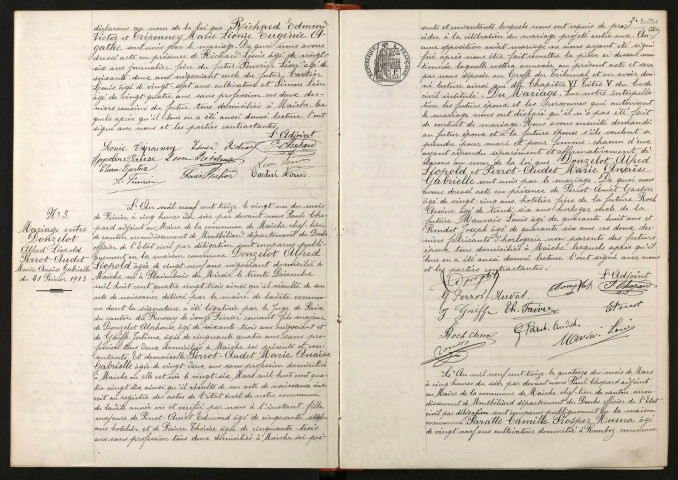 déclarons au nom de la loi que Richard Edmond
Victor et Crisonney Marie Léonie Eugénie A-
gathe sont unis par le mariage. De quoi nous avons
dressé acte en présence de Richard Louis âgé de vingt-
six ans
soixante-deux ans négociant
Louis âgé de vingt-sept ans cultivateur et Simon Léon
âgé de vingt-quatre ans sans profession ces deux der-
niers cousins du futur tous domiciliés à Maîche, les-
quels après qu'il leur en a été aussi donné lecture l'ont
signé avec nous et les parties contractantes.
L'Adjoint
P. Chopard
Cartier Louis
N° 3.
Mariage entre
Donzelot
Alfred Léopold
Perrot-Audet
Marie Anaïse Gabrielle
du 21 Février 1913
L'An mil neuf cent treize le vingt un du mois
de Février à cinq heures du soir par devant nous Paul Cho-
pard adjoint au Maire de la commune de Maîche chef-lieu
de canton arrondissement de Montbéliard département du Doubs
officier de l'Etat civil par délégation sont comparus publi-
quement en la maison commune Donzelot Alfred
Léopold âgé de vingt-neuf ans négociant domicilié à
Maîche né à Plaimbois du Miroir le trente Décembre
mil huit cent quatre vingt trois ainsi qu'il résulte de son
acte de naissance délivré par le maire de ladite commune
dont la signature a été légalisée par le Juge de Paix
du canton du Russey le Février courant fils majeur
de Donzelot Alphonse âgé de soixante-trois ans négociant et
de Gaiffe âgée de cinquante quatre ans sans pro-
fession tous deux domiciliés à Maîche ici présents et con-
sentants. Et demoiselle Perrot-Audet Marie Anaïse
Gabrielle âgée de vingt-deux ans sans profession domiciliée
à Maîche où elle est née le vingt-dix Mars mil huit cent qua-
tre vingt-dix ainsi qu'il résulte de son acte de naissance ins-
crit au registre des actes de l'état civil de notre commune
de ladite année vu et vérifié par nous à l'instant fille
majeure de Perrot-Audet Edmond âgé de cinquante
ans hôtelier et de Faivre Thérèse âgée de cinquante-trois
ans sans profession tous deux domiciliés à Maîche ici pré-
sents et consentants lesquels nous ont requis de pro-
céder à la célébration du mariage projeté entre eux. Au-
cune opposition audit mariage ne nous ayant été signi-
fiée après nous être fait remettre la pièce ci-dessus men-
tionnée laquelle restera annexée au présent acte et sera
par nous déposée au Greffe du tribunal et en avoir don-
né lecture ainsi que du Chapitre VI titre V du Code
civil intitulé Du Mariage. Sur notre interpella-
tion les futurs époux et les personnes qui autorisent
le mariage nous ont déclaré qu'il n'a pas été fait
de contrat de mariage. Nous avons ensuite demandé
au futur époux et à la future épouse s'ils veulent se
prendre pour mari et pour femme chacun d'eux
ayant répondu séparément et affirmativement dé-
clarons au nom de la loi que Donzelot Alfred
Léopold et Perrot-Audet Marie Anaïse
Gabrielle sont unis par le mariage. De quoi nous
avons dressé acte en présence de Perrot-Audet Gaston
âgé de vingt-cinq ans hôtelier frère de la future
âgé de trente-six ans horloger oncle de la
future Mauvais Louis âgé de quarante-huit ans et
Joseph âgé de quarante-six ans ces deux der-
niers fabricants d'horlogerie non parents des futurs
époux tous domiciliés à Maîche lesquels après qu'il
leur en a été aussi donné lecture l'ont signé avec nous
et les parties contractantes.
L'Adjoint
P. Chopard
Donzelot
Th. Faivre
Mauvais Louis
L'An mil neuf cent treize le quatorze du mois de Mars
à cinq heures du soir par devant nous Paul Chopard adjoint
au Maire de la commune de Maîche chef-lieu de canton arron-
dissement de Montbéliard département du Doubs officier de l'Etat
civil par délégation sont comparus publiquement en la maison
commune Paratte Camille Prosper Numa âgé
de vingt-neuf ans cultivateur domicilié à